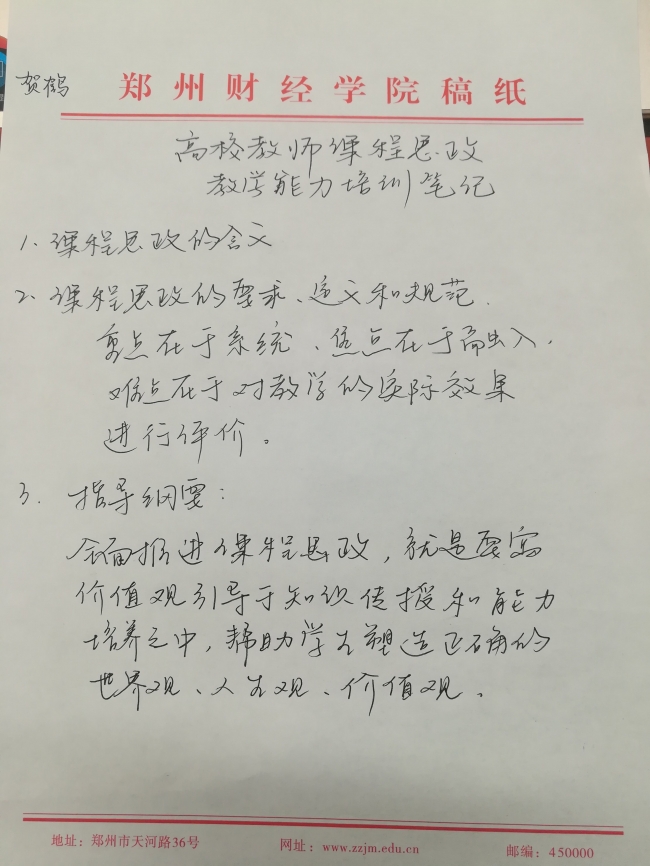 贺鹤
郑州财经学院稿纸
高校教师课程思政
教学能力培训笔记
1. 课程思政的含义
2. 课程思政的要求、意义和规范.
重点在于系统、焦点在于而出入.
难点在于对教学的实际效果
进行评价。
3. 指导纲要:
全面推进课程思政,就是要寓
价值观引导于知识传授和能力
培养之中,帮助学生塑造正确的
世界观、人生观、价值观。
地址:郑州市天河路36号
网址:www.zzjm.edu.cn
邮编:450000